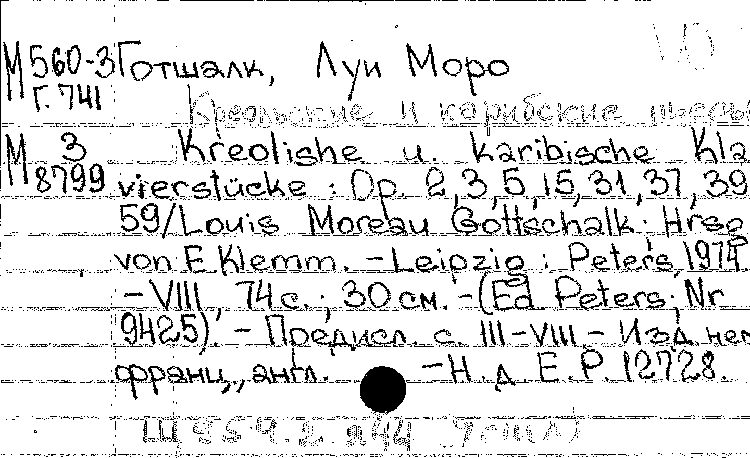 М 560-3 Готшалк, Луи Моро
Г. 741
Креольские и карибские пьесы
М 3 Kreolishe u. Karibische Kla
8799 vierstücke : Op. 2,3,5,15,31,37,39
59/Louis Moreau Gottschalk; Hrsg
von E. Klemm. - Leipzig : Peters, 1974
- VIII, 74 с. ; 30 см. - (Ed. Peters; Nr
9425). - Предисл. с. III-VIII - Изд. нем
франц., англ. - Н. д. E. P. 12728.
Щ